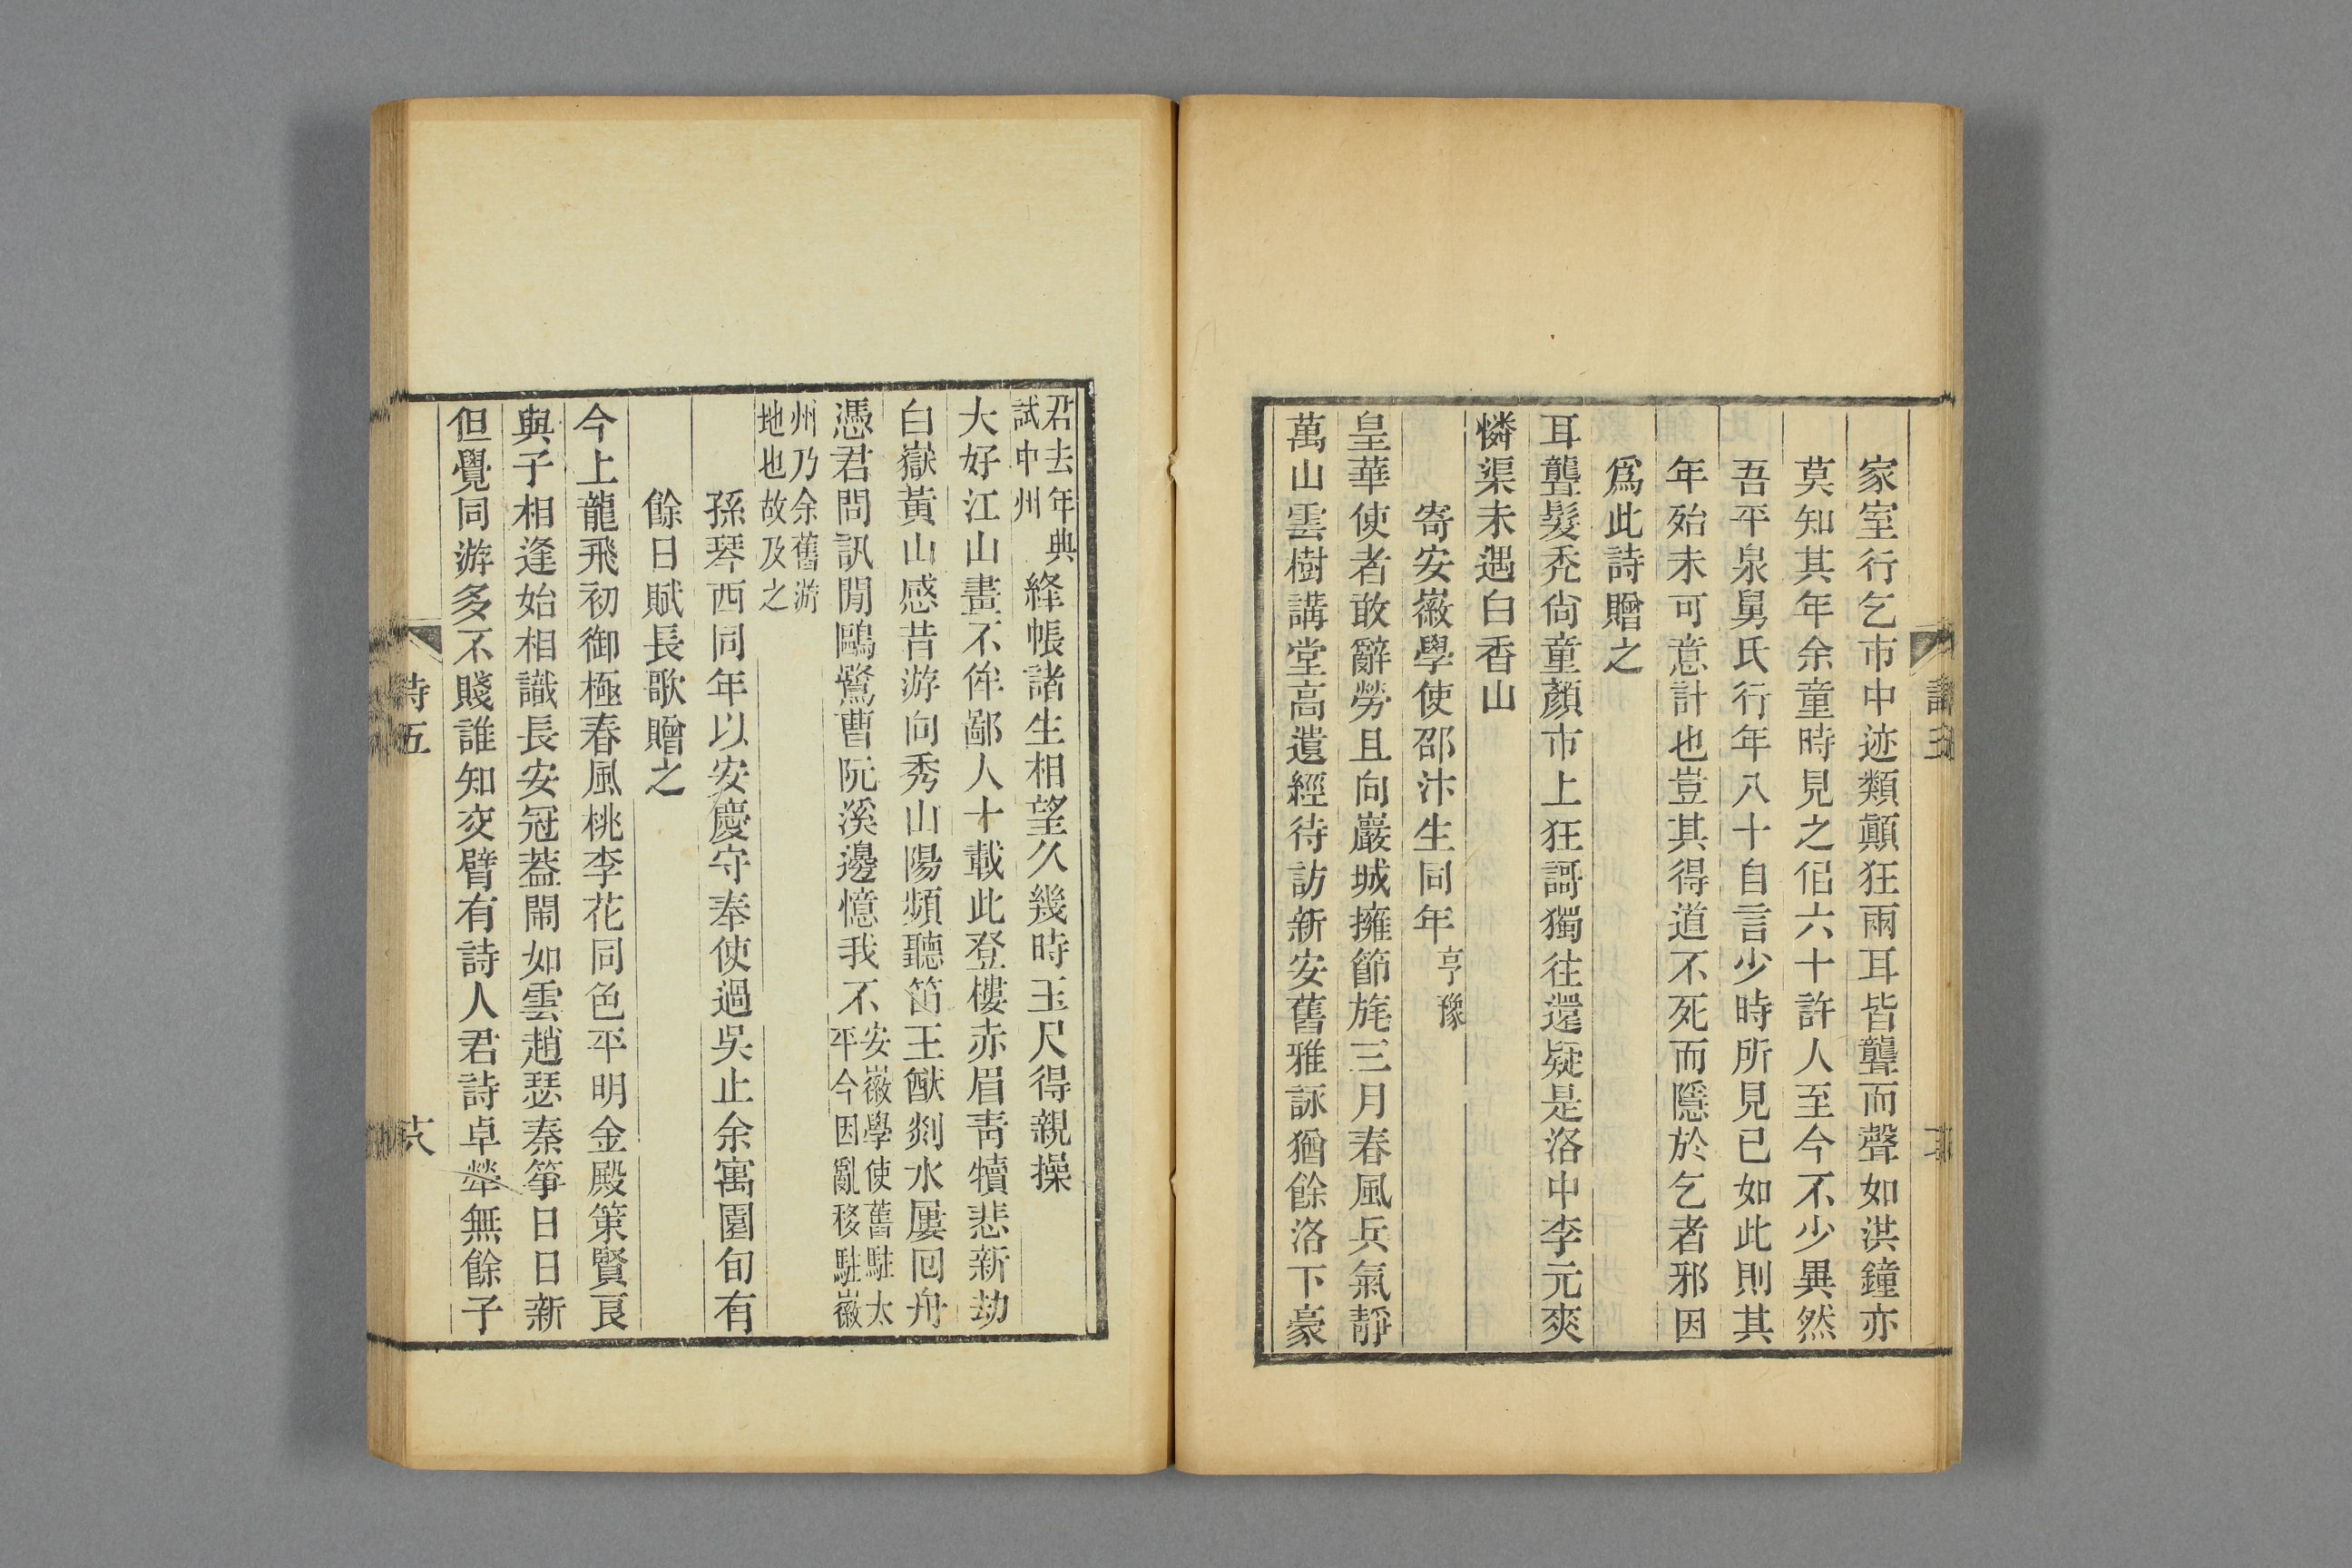 家室行乞市中迹類顛狂兩耳皆聾而聲如洪鐘亦
莫知其年余童時見之佀六十許人至今不少異然
吾平泉舅氏行年八十自言少時所見已如此則其
年殆未可意計也豈其得道不死而隱於乞者邪因
爲此詩贈之
耳聾髮禿尙童顏市上狂謌獨往還疑是洛中李元爽
憐渠未遇白香山
寄安徽學使邵汴生同年亨豫
皇華使者敢辭勞且向巖城擁節旄三月春風兵氣靜
萬山雲樹講堂高遺經待訪新安舊雅詠猶餘洛下豪
君去年典試中州絳帳諸生相望久幾時玉尺得親操
大好江山畫不侔鄙人十載此登樓赤眉靑犢悲新劫
白嶽黃山感昔游向秀山陽頻聽笛王猷剡水屢囘舟
憑君問訊閒鷗鷺曹阮溪邊憶我不安徽學使舊駐太平今因亂移駐徽
州乃余舊游地也故及之
孫琴西同年以安慶守奉使過吳止余寓園旬有
餘日賦長歌贈之
今上龍飛初御極春風桃李花同色平明金殿策賢良
與子相逢始相識長安冠葢鬧如雲趙瑟秦箏日日新
但覺同游多不賤誰知交臂有詩人君詩卓犖無餘子
詩五